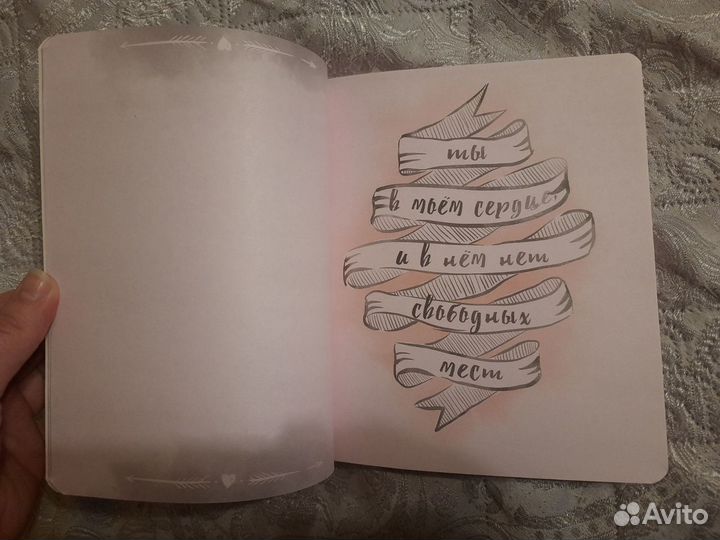 ты
в моём сердце,
и в нём нет
свободных
мест
Avito